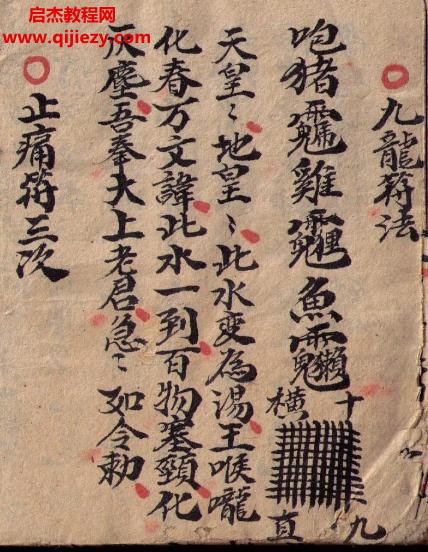 启杰教程网
www.qijiezy.com
九龍符法
咆猪雞魚
十
橫
九
直
天皇〻地皇〻此水变為湯王喉嚨
化春万文諱此水一到百物塞頸化
灰塵吾奉太上老君急〻如令勅
止痛符三次